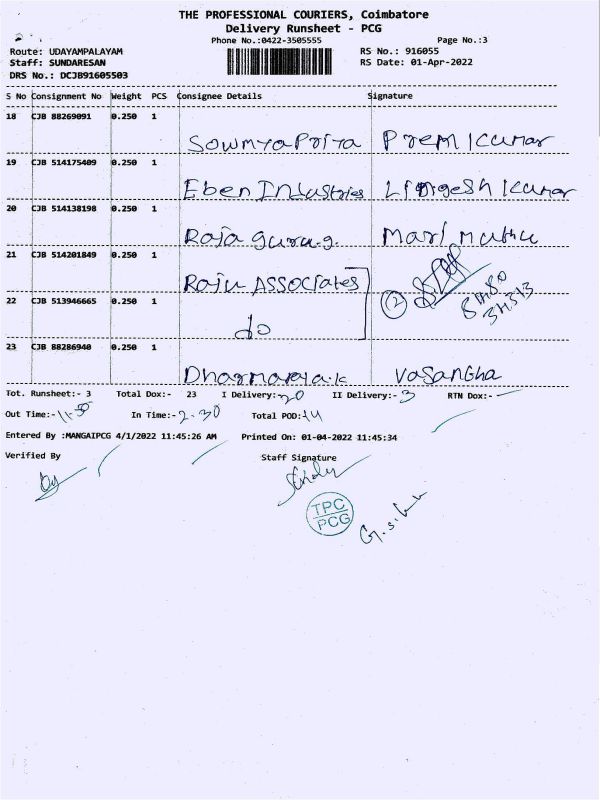 THE PROFESSIONAL COURIERS, Coimbatore
Delivery Runsheet - PCG
Phone No.:0422-3505555 Page No.:3
Route: UDAYAMPALAYAM RS No.: 916055
Staff: SUNDARESAN RS Date: 01-Apr-2022
DRS No.: DCJB91605503
S No Consignment No Weight PCS Consignee Details Signature
18 CJB 88269091 0.250 1
Sowmya Priya Prem Kumar
19 CJB 514175409 0.250 1
Eben Industries Lingesh Kumar
20 CJB 514138198 0.250 1
Raja guru.g. Mari Muthu
21 CJB 514201849 0.250 1
Raju Associates
22 CJB 513946665 0.250 1
do
2
23 CJB 88286940 0.250 1
Dharmaraja.k Vasantha
Tot. Runsheet:- 3 Total Dox:- 23 I Delivery:- 20 II Delivery:- 3 RTN Dox:- -
Out Time:- 11-50 In Time:- 2-30 Total POD:- 14
Entered By :MANGAIPCG 4/1/2022 11:45:26 AM Printed On: 01-04-2022 11:45:34
Verified By Staff Signature
TPC
PCG